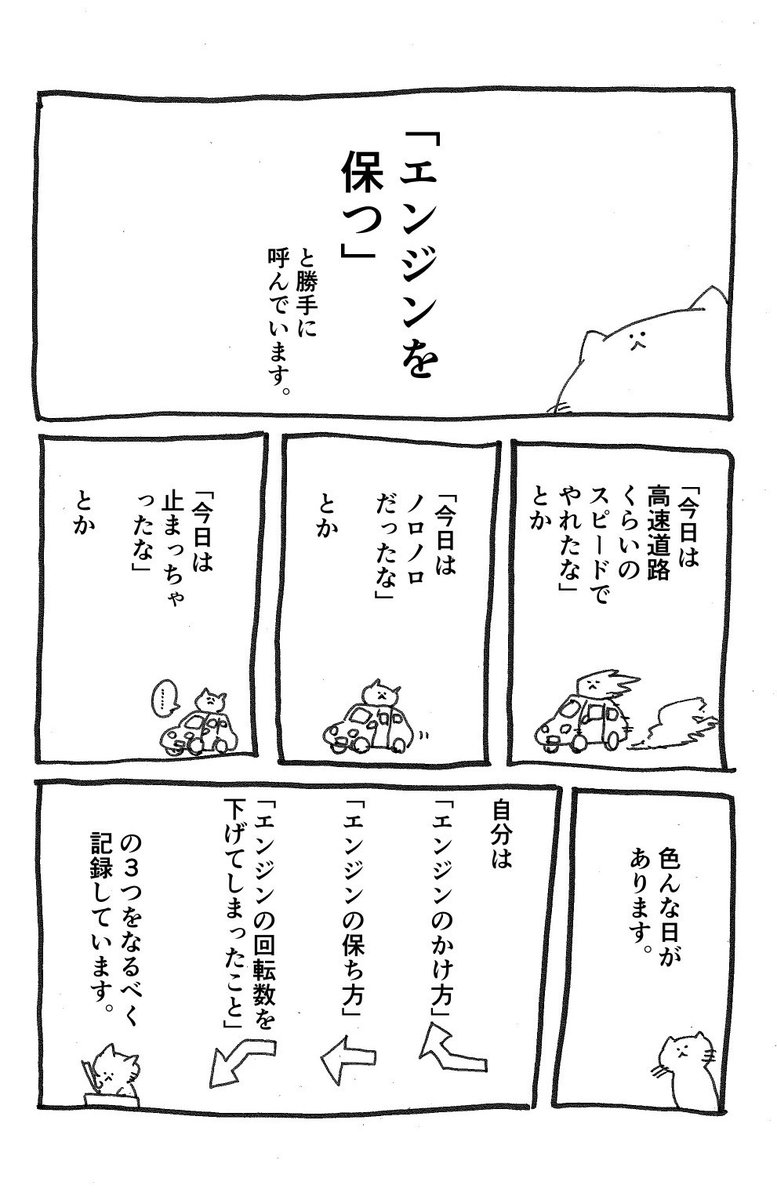 「エンジンを
保つ」
と勝手に
呼んでいます。
「今日は
高速道路
くらいの
スピードで
やれたな」
とか
「今日は
ノロノロ
だったな」
とか
「今日は
止まっちゃ
ったな」
とか
……
色んな日が
あります。
自分は
「エンジンのかけ方」
「エンジンの保ち方」
「エンジンの回転数を
下げてしまったこと」
の３つをなるべく
記録しています。